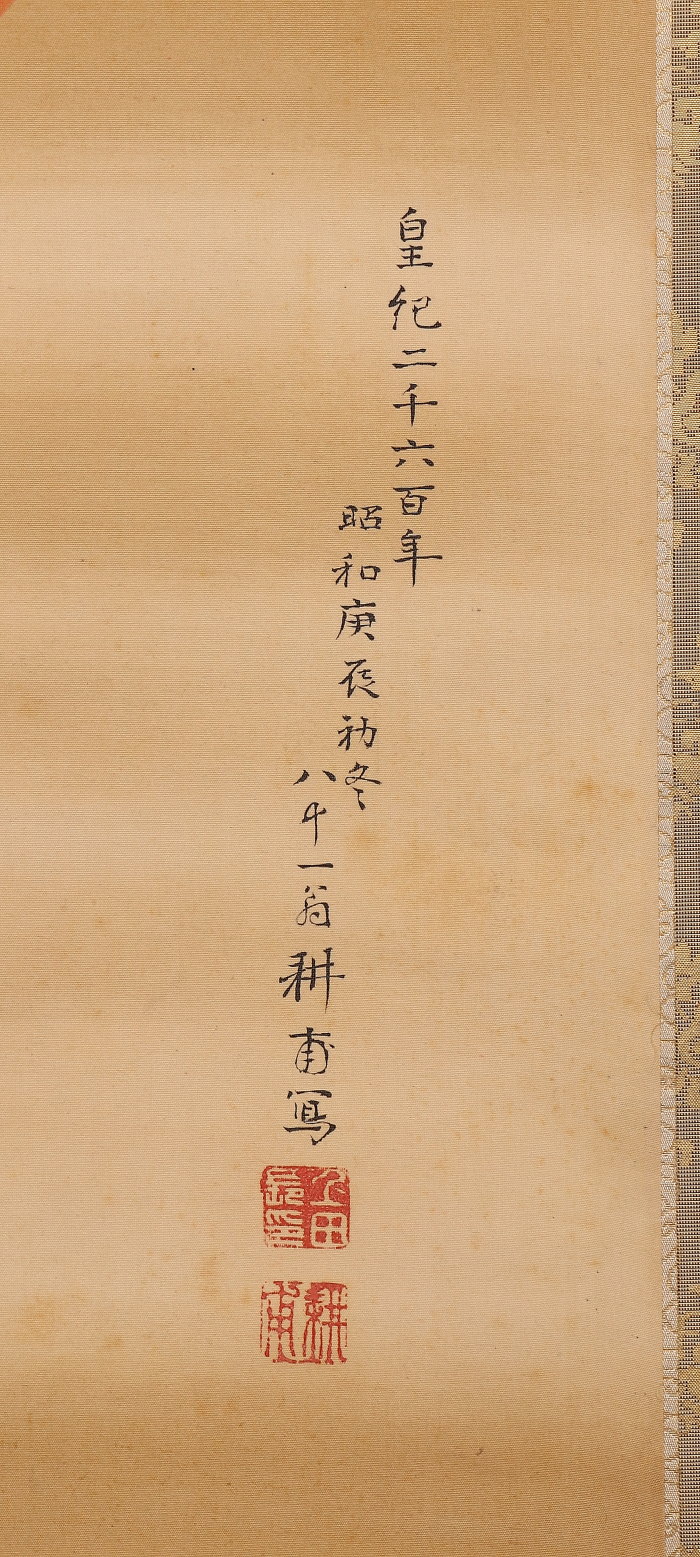 皇紀二千六百年
昭和庚辰初冬
八十一翁耕甫写
耕甫